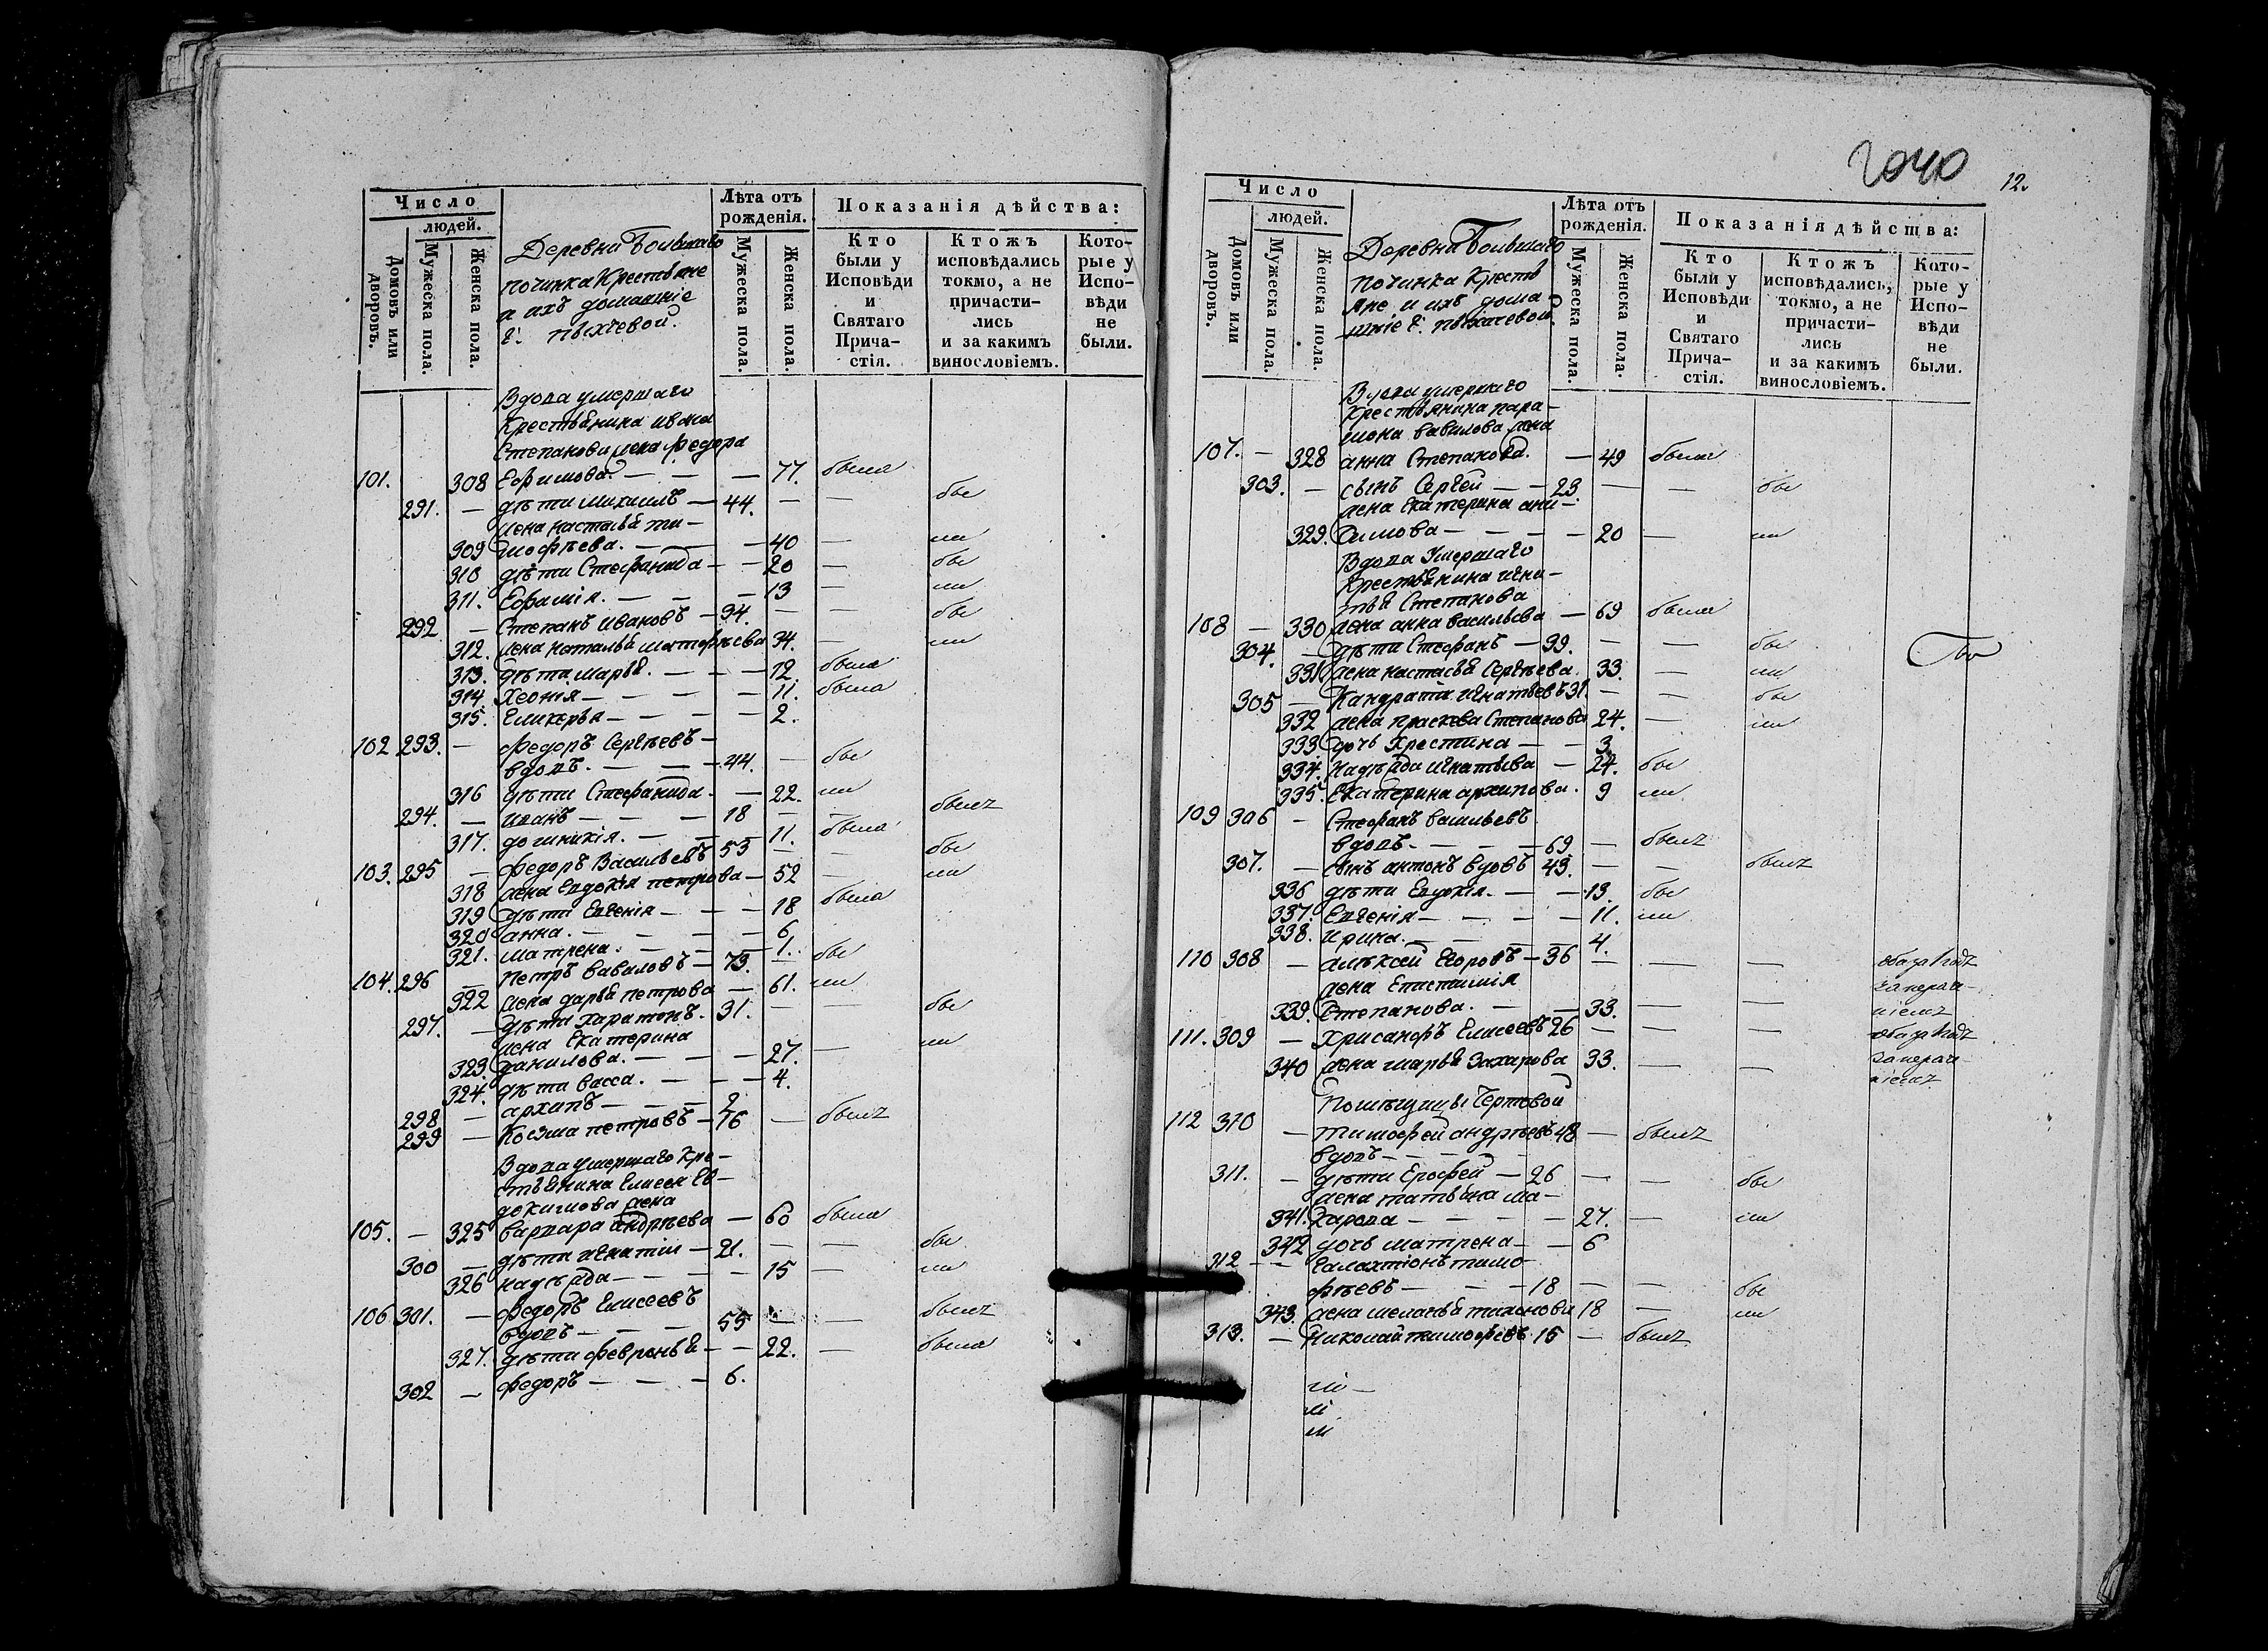 Число
людей.
Домовъ или дворовъ.
Мужеска пола.
Женска пола.
Деревни Большаго
починка Крестьяне
и ихъ домашніе
Лѣта отъ рожденія.
Мужеска пола.
Женска пола.
Показанія дѣйства:
Кто были у Исповѣди и Святаго Прича- стія.
Ктожъ исповѣдались токмо, а не причасти- лись и за какимъ винословіемъ.
Кото- рые у Испо- вѣди не были.
Вдова умершаго
Крестьянина Ивана
Степанова жена Федора
101. 308 Ефимова. — — — 77. была
291. — дѣти Михаилъ — 44. — — бы
жена Настасья Ти-
309 мофѣева. — — 40 — ли
310 дѣти Стефанида — — 20 — бы
311. Ефимія. — — — 13 — ли
292 — Степанъ Ивановъ — 34. — — бы
312. жена Наталья Матфѣева 34. — ли
313. дѣти Марья. — — — 12. была
314. Хеонія — — — — 11. была
315. Гликерья — — — — 2.
102 293. — Федоръ Сергѣевъ —
вдовъ. — — — 44. — бы
316 дѣти Стефанида. — 22. ли
294. — Иванъ — — — 18 — — былъ
317. Домникія. — — — 11. была
103. 295 — Федоръ Васильевъ 53 — — бы
318 жена Евдокія Петрова — 52 — ли
319 дѣти Евгенія — — — 18 была
320 Анна. — — — — 6.
321. Матрена. — — — 1.
104. 296 — Петръ Вавиловъ — 73. — бы
322 жена Дарья Петрова — 61. ли
297. — дѣти Харитонъ. 31. — — бы
жена Екатерина
323. Данилова. — — — 27. — ли
324. дѣти Васса. — — — 4.
298 — Архипъ — — — 2
299 — Козьма Петровъ — 16 — былъ
Вдова умершаго Кре-
стьянина Елисея Ев-
докимова жена
105. — 325 Варвара Андрѣева — 60 была
300 — дѣти Игнатій — 21. — — бы
326 Надѣжда — — — — 15 — ли
106 301. — Федоръ Елисеевъ
вдовъ — — — 55 — — былъ
327. дѣти Февронья — — 22. — была
302 — Федоръ — — — 6.
2040
12.
Число
людей.
Домовъ или дворовъ.
Мужеска пола.
Женска пола.
Деревни Большаго
починка Кресть
яне и ихъ дома
Лѣта отъ рожденія.
Мужеска пола.
Женска пола.
Показанія дѣйства:
Кто были у Исповѣди и Святаго Прича- стія.
Ктожъ исповѣдались, токмо, а не причасти- лись и за какимъ винословіемъ.
Кото- рые у Испо- вѣди не были.
Вдова умершаго
Крестьянина Пара-
мона Вавилова жена
107. — 328 Анна Степанова. — 49 была
303. — сынъ Сергей — — 23. — — бы
жена Екатерина Ани-
329. симова — — — — 20 — ли
Вдова Умершаго
Крестьянина Игна-
тья Степанова
108 — 330 жена Анна Васильева — 69 была
304. — дѣти Стефанъ — 39. — — бы
331 жена Настасья Сергѣева. 33. — ли
305 — Кандратій Игнатьевъ 31. — — бы
332 жена Праскева Степанова 24. — ли
333 дочь Христина — — 3.
334. Надѣжда Игнатьева — 24. бы
335. Екатерина Архипова. 9 ли
109 306 — Стефанъ Васильевъ
вдовъ. — — — 69 — былъ
307. — сынъ Антонъ вдовъ 43. — — былъ
336 дѣти Евдокія. — — 13. бы
337. Евгенія — — — — 11. ли
338. Ирина. — — — 4.
110 308 — Алѣксей Егоровъ — 36 — — —
жена Епистимія
339. Степанова. — — 33. — —
111. 309 — Хрисанфъ Елисеевъ 26 — — —
340 жена Марья Захарова 33. — —
Помѣщицы Чертовой
112 310 — Тимофей Андрѣевъ 48 — былъ
вдовъ — — —
311. — дѣти Ерофей — 26 — — бы
жена Татьяна Ма-
341. карова — — — — 27. — ли
342 дочь Матрена — — 6
312 — — Галахтіонъ Тимо-
фѣевъ — — — 18 — — бы
343. жена Меланья Тихонова 18 — ли
313. — Николай Тимофеевъ 15 — былъ